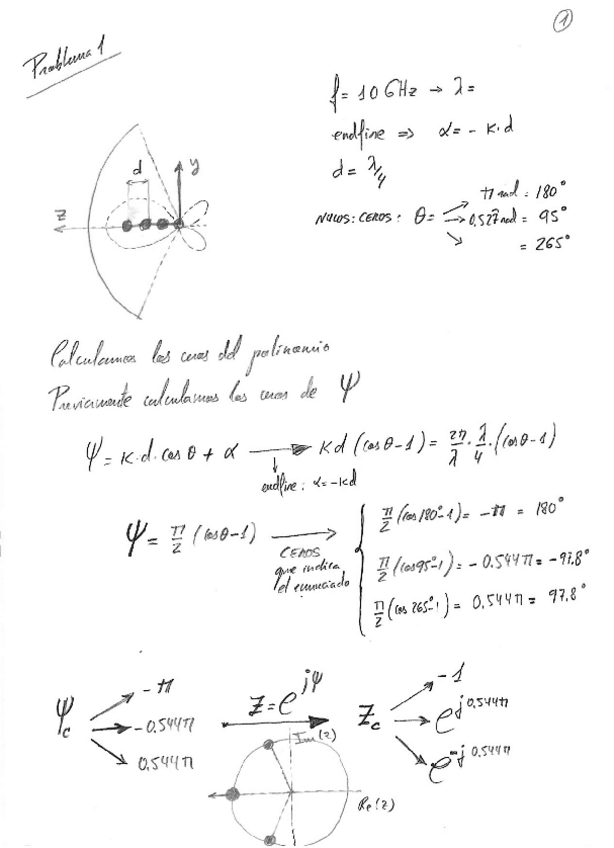 1
Problema 1
f = 10 GHz → λ =
endfire ⇒ α = - K·d
d = λ/4
NULOS: CEROS: θ = → π rad = 180°
→ 0,527π rad = 95°
→ = 265°
d
y
z
Calculamos los ceros del polinomio
Previamente calculamos los ceros de Ψ
Ψ = K·d·cos θ + α → Kd (cos θ - 1) = 2π/λ · λ/4 · (cos θ - 1)
endfire: α = -Kd
Ψ = π/2 (cos θ - 1) →
CEROS
que indica
el enunciado
π/2 (cos 180° - 1) = -π = 180°
π/2 (cos 95° - 1) = - 0.544π = -97.8°
π/2 (cos 265° - 1) = 0.544π = 97.8°
Ψc → -π
→ -0.544π
→ 0.544π
Z = e^jΨ
Zc → -1
→ e^j0.544π
→ e^-j0.544π
Im(z)
Re(z)